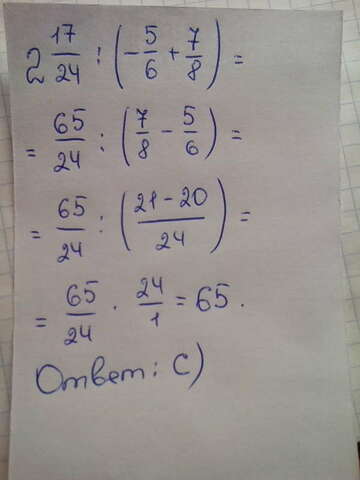 2 17/24 : (-5/6 + 7/8) =
= 65/24 : (7/8 - 5/6) =
= 65/24 : (21-20/24) =
= 65/24 · 24/1 = 65.
Ответ: С)